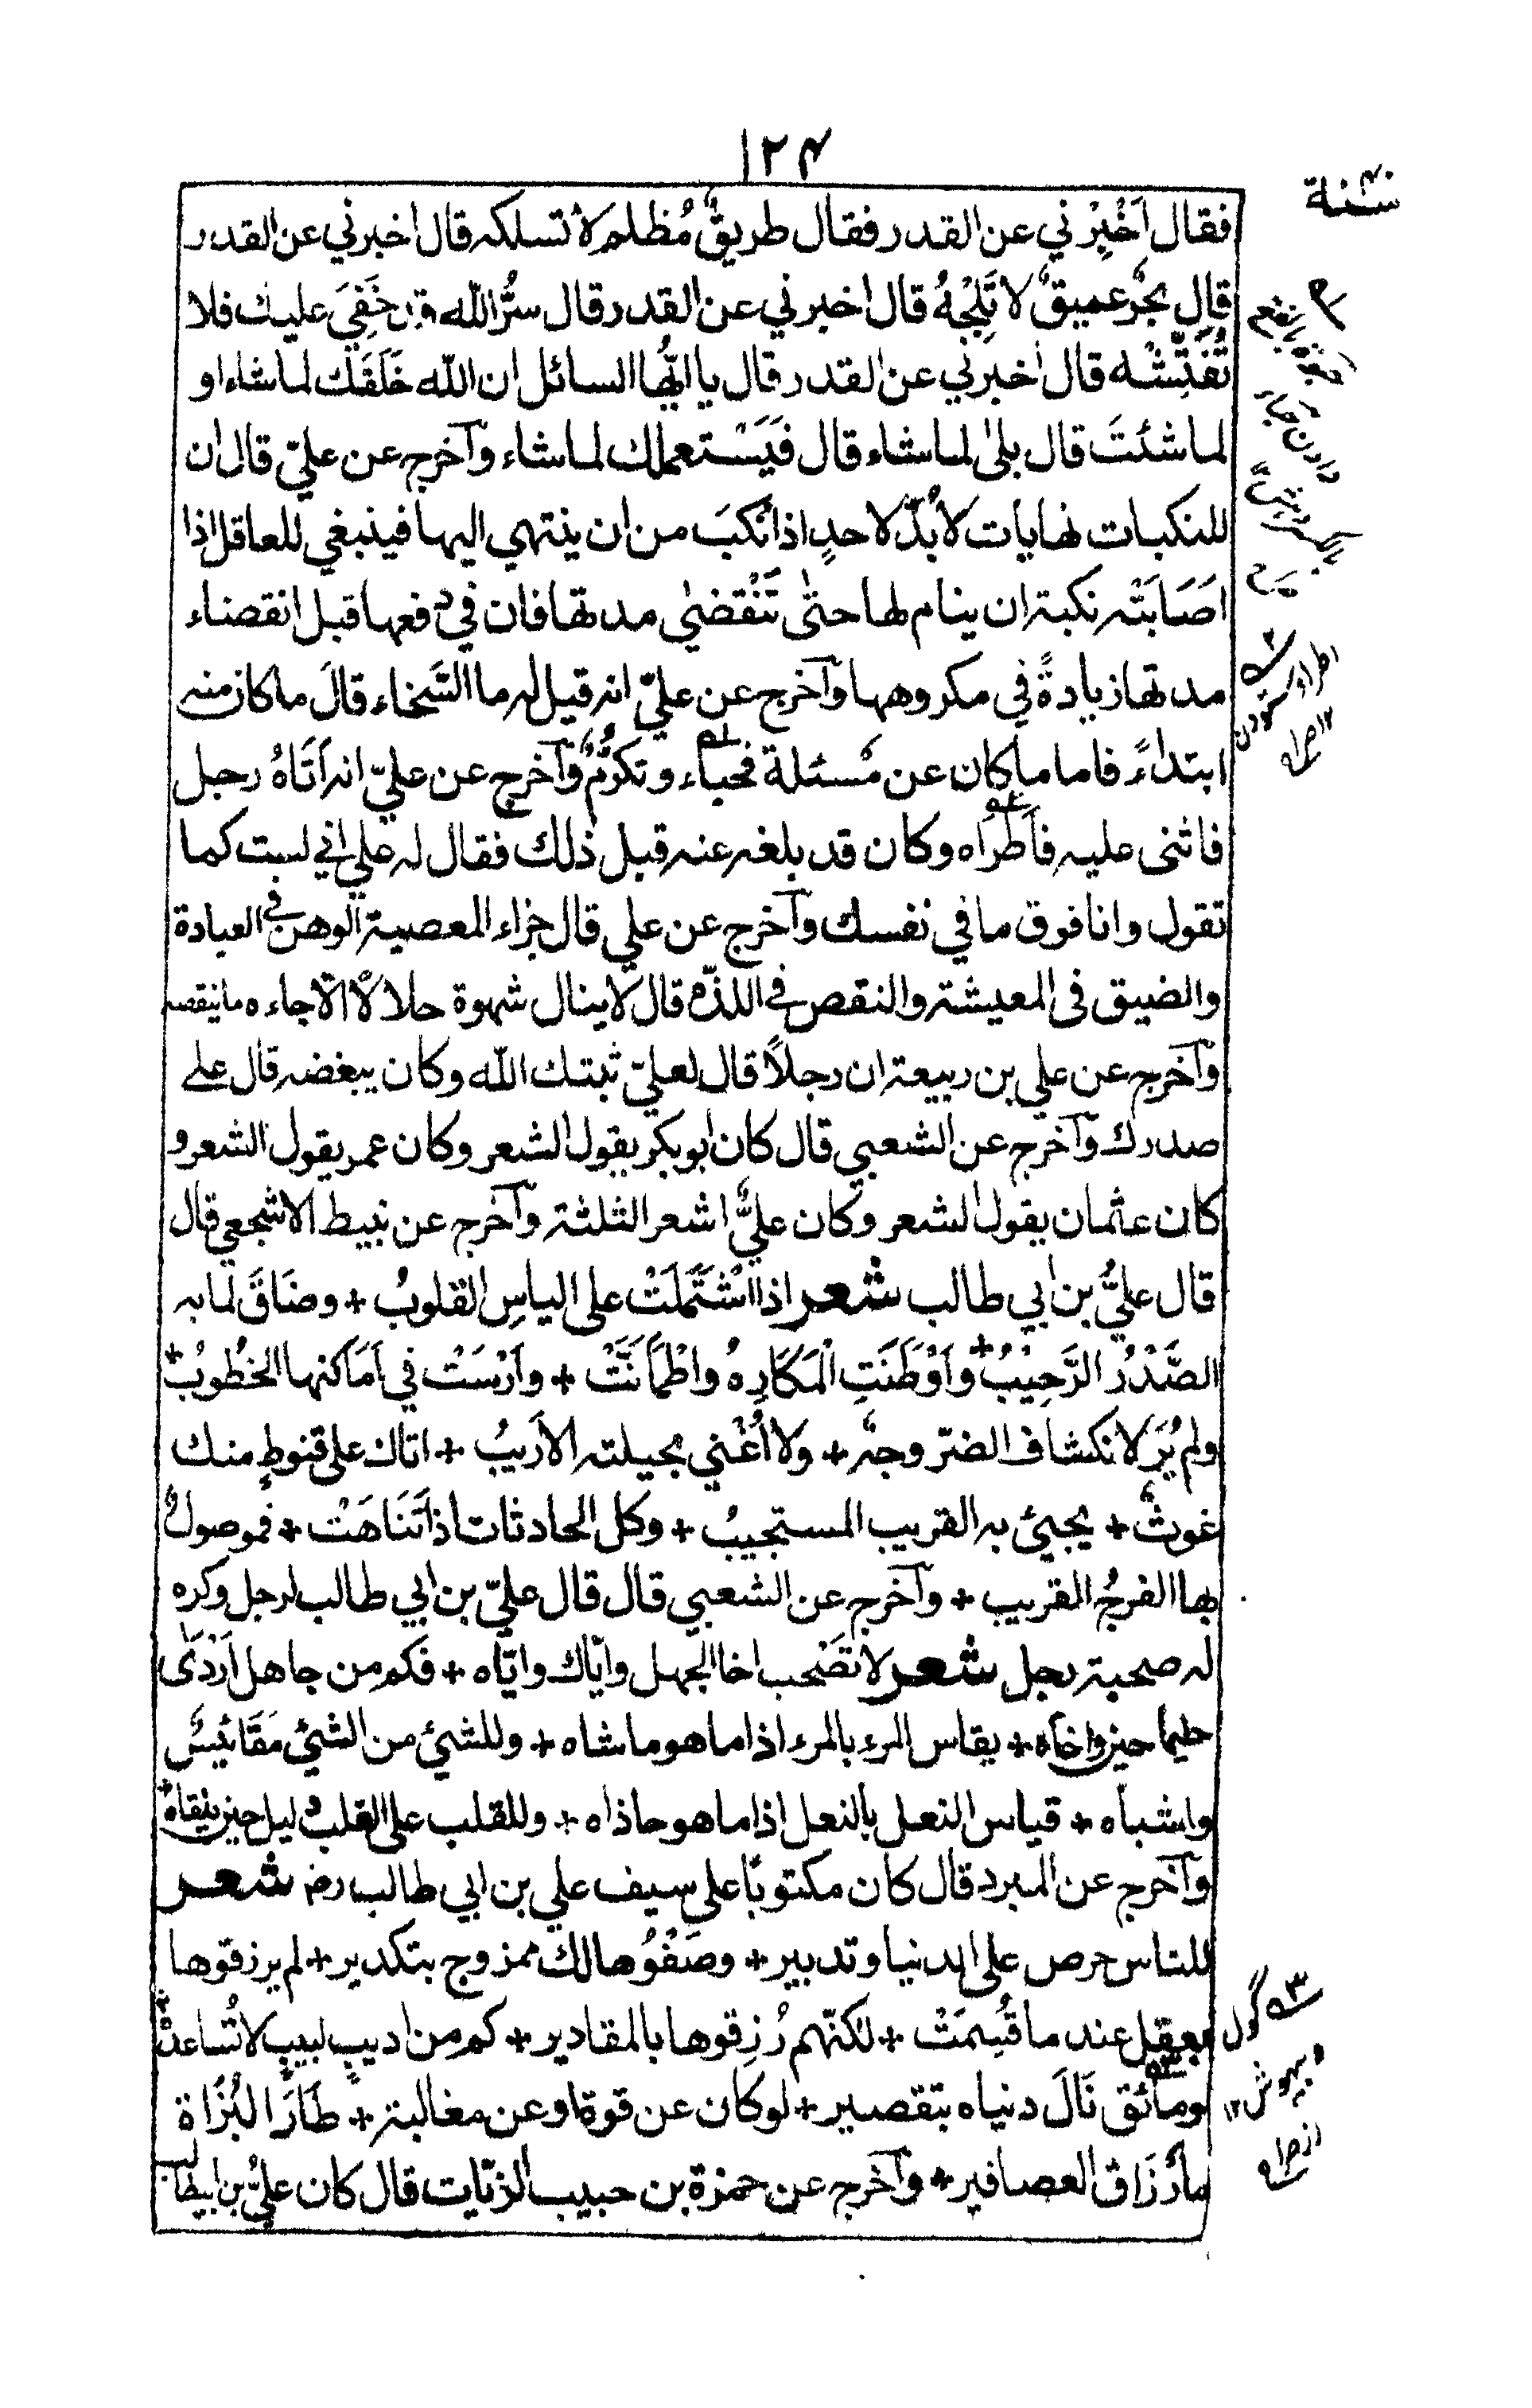 ١٢٤
سنة
فقال اَخْبِرْني عن القدر فقال طريقٌ مُظلم لا تسلكه قال اخبرني عن القدر
قال بحرٌ عميقٌ لا تَلِجْهُ قال اخبرني عن القدر قال سرُّ اللّٰه قد خَفِيَ عليك فلا
تُفَتِّشْه قال اخبرني عن القدر قال يا ايُّها السائل ان اللّٰه خَلَقَك لما شاء او
لما شئتَ قال بلىٰ لما شاء قال فَيَسْتعملك لما شاء وآخرج عن عليّ قال ان
للنكبات نهايات لا بُدّ لاحدٍ اذا نُكبَ من ان ينتهي اليها فينبغي للعاقل اذا
اصَابَتْه نكبة ان ينام لها حتىٰ تَنْقضيٰ مدتها فان في دفعها قبل انقضاء
مدتها زيادةً في مكروهها وآخرج عن عليّ انه قيل له ما السَّخاء قالَ ما كان منه
ابتداءً فاما ما كان عن مَسئلة فحياء وتكرُّمٌ وآخرج عن عليّ انه اَتَاهُ رجل
فاثنى عليه فاَطْرَاه وكان قد بلغه عنه قبل ذٰلك فقال له علي اني لست كما
تقول وانا فوق ما في نفسك وآخرج عن علي قال جزاء المعصية الوهن في العبادة
والضيق في المعيشة والنقص في اللذّة قال لا ينال شهوة حلالًا الّا جاءه ما ينقصه
وآخرج عن علي بن ربيعة ان رجلاً قال لعليّ ثبتك اللّٰه وكان يبغضه قال على
صدرك وآخرج عن الشعبي قال كان ابوبكر يقول الشعر وكان عمر يقول الشعر و
كان عثمان يقول الشعر وكان عليٌّ اشعر الثلثة وآخرج عن نبيط الاشجعي قال
قال عليُّ بن ابي طالب شعر اذا اشْتَمَلَتْ على الياسِ القلوبُ + وضَاقَ لما به
الصَّدْرُ الرَّحِيْبُ + وَاَوْطَنَتِ الْمَكَارِهُ واطْمَانَّتْ + واَرْسَتْ في اَمَاكنها الخُطُوبُ +
ولم يُرَ لانكشاف الضر وجهٌ + ولا اَغْنٰي بحيلته الاَريبُ + اتاك على قنوطٍ منك
غوثٌ + يجيئ به القريب المستجيبُ + وكل الحادثات اذا تَنَاهَتْ + فموصولٌ
بها الفرجُ القريب + وآخرج عن الشعبي قال قال عليّ بن ابي طالب لرجل وكره
له صحبة رجل شعر لا تصْحب اخا الجهل وايّاك وايّاه + فكم من جاهل اَرْدَىٰ
حليما حين واخاه + يقاس المرء بالمرء اذا ما هو ماشاه + وللشيئ من الشيئ مَقَائيسٌ
واشباه + قياس النعل بالنعل اذا ما هو حاذاه + وللقلب على القلب دليل حين يلقاه +
وآخرج عن المبرد قال كان مكتوبًا على سيف علي بن ابي طالب رض شعر
للناس حرص على الدنيا وتدبير + وصَفْوُها لك ممزوج بتكدير + لم يرزقوها
بعقل عند ما قُسِمَتْ + لكنّهم رُزِقوها بالمقادير + كم من اديبٍ لبيبٍ لا تُساعده
ومائق نَالَ دنياه بتقصير + لو كان عن قوة او عن مغالبة + طَارَ البُزَاة
بأَرْزَاق العصافير + وآخرج عن حمزة بن حبيب الزيّات قال كان عليُّ بن ابيطالب
٣ گول
و بيهوش ١٢
از صراح